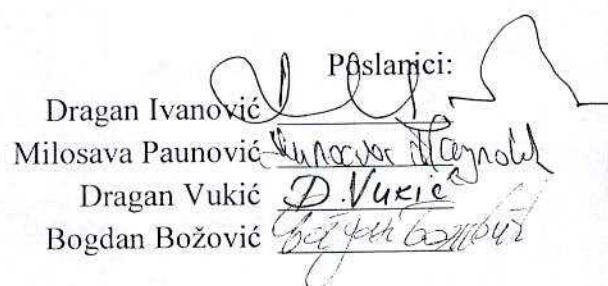 Poslanici:
Dragan Ivanović
Milosava Paunović
Dragan Vukić D. Vukić
Bogdan Božović